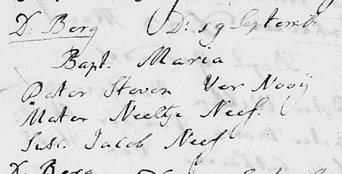 D: Berg D: 19 Septemb:
Bapt. Maria
Pater Steven Ver Nooÿ
Mater Neeltje Neef.
Test. Jacob Neef
D: Berg